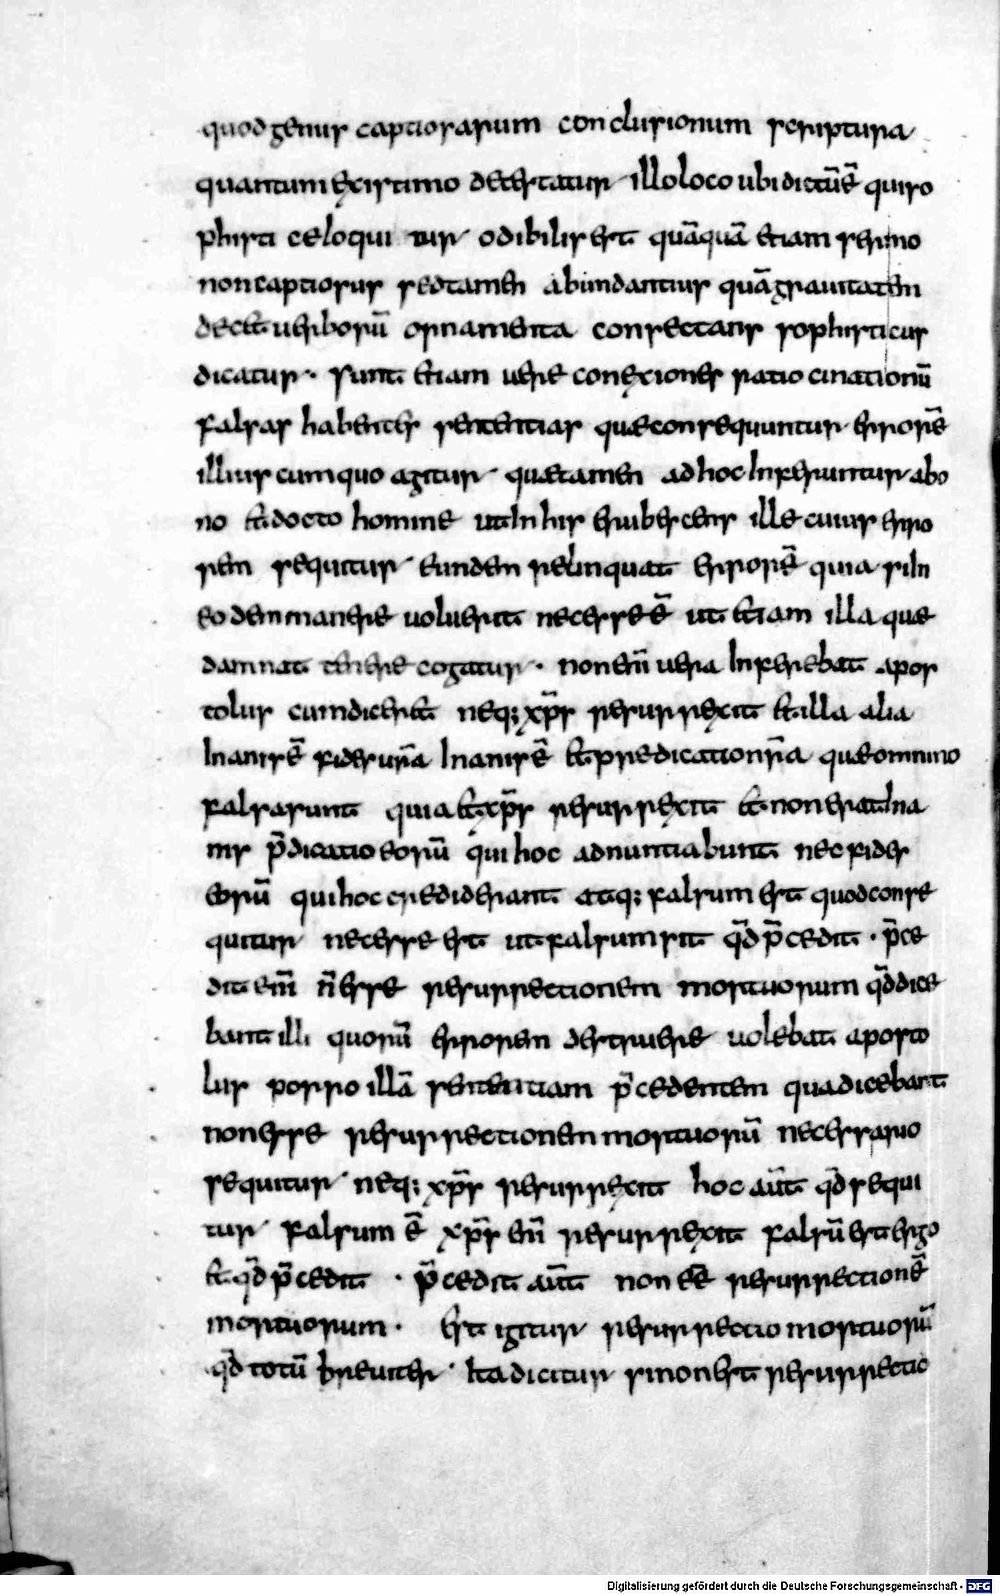 quodgenus captiosarum conclusionum scriptura
quantumexistimo detestatur illoloco ubi dictū ē quiso
phisti celoqui tur odibilis est quāquā etiam sermo
noncaptiosus sedtamen abundantius quāgrauitatem
decet uerborū ornamenta consectans sophisticus
dicatur· sunt etiam uere conexiones ratiocinationū
falsas habentes sententias quaeconsequuntur errorē
illius cumquo agitur quaetamen adhoc inferuntur abo
no et docto homine utin his erubescens ille cuius erro
rem sequitur eundem relinquat errorē quia siin
eodemmanere uoluerit necesse ē ut etiam illa quae
damnat tenere cogatur· nonenī uera inferebat apos
tolus cumdiceret neq; xp̄s resurrexit et illa alia
inanis ē fides ur̄a inanis ē et predicationr̄a quaeomnino
falsasunt quia et xp̄s resurrexit et non erat ina
nis p̄dicatio eorū qui hoc adnuntiabunt nec fides
eorū qui hoc crediderant atq; falsum est quodconse
quitur necesse est ut falsum sit qd̄ p̄cedit· p̄ce
dit em̄ n̄ esse resurrectionem mortuorum qd̄ dice
bant illi quorū errorem destruere uolebat aposto
lus porro illā sententiam p̄cedentem quadicebant
nonesse resurrectionem mortuorū necessario
sequitur neq; xp̄s resurrexit hoc aūt qd̄ sequi
tur falsum ē xp̄s enī resurrexit falsū est ergo
et qd̄ p̄cedit· p̄cedit aūt non eē resurrectionē
mortuorum· est igitur resurrectio mortuorū
qd̄ totū breuiter ita dicitur sinonest resurrectio
Digitalisierung gefördert durch die Deutsche Forschungsgemeinschaft - DFG